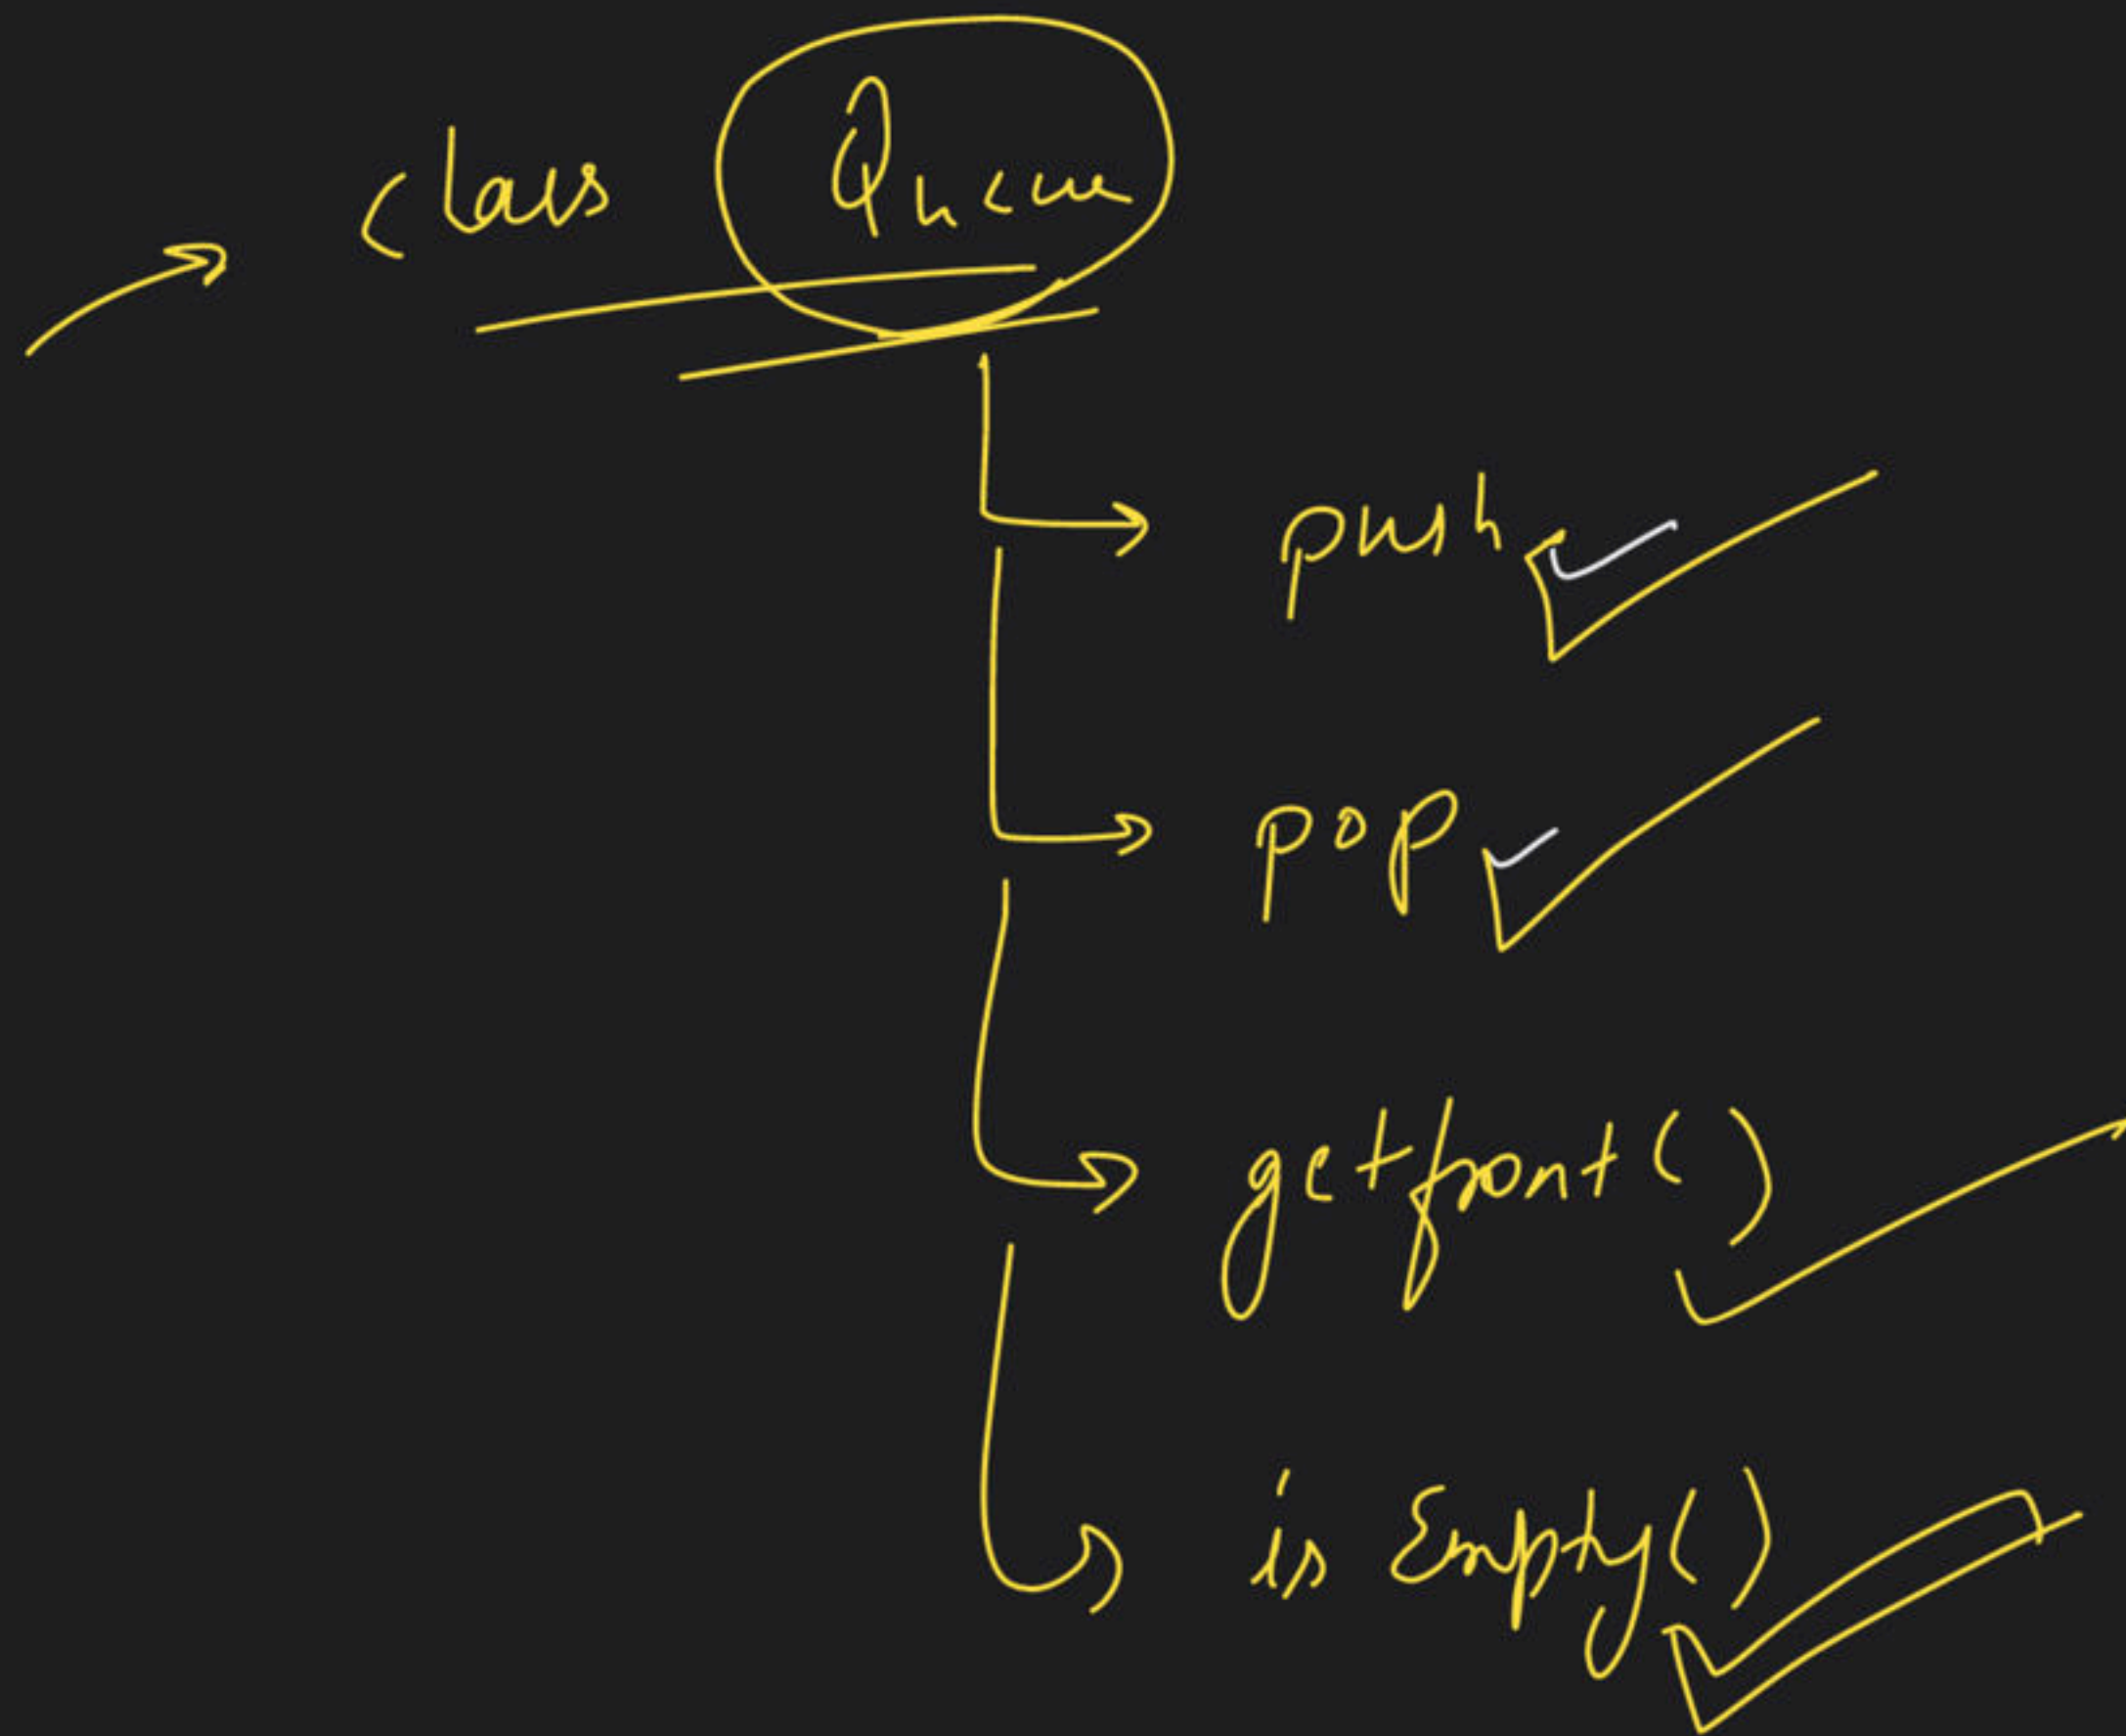 class Queue
push
pop
getfront()
isEmpty()